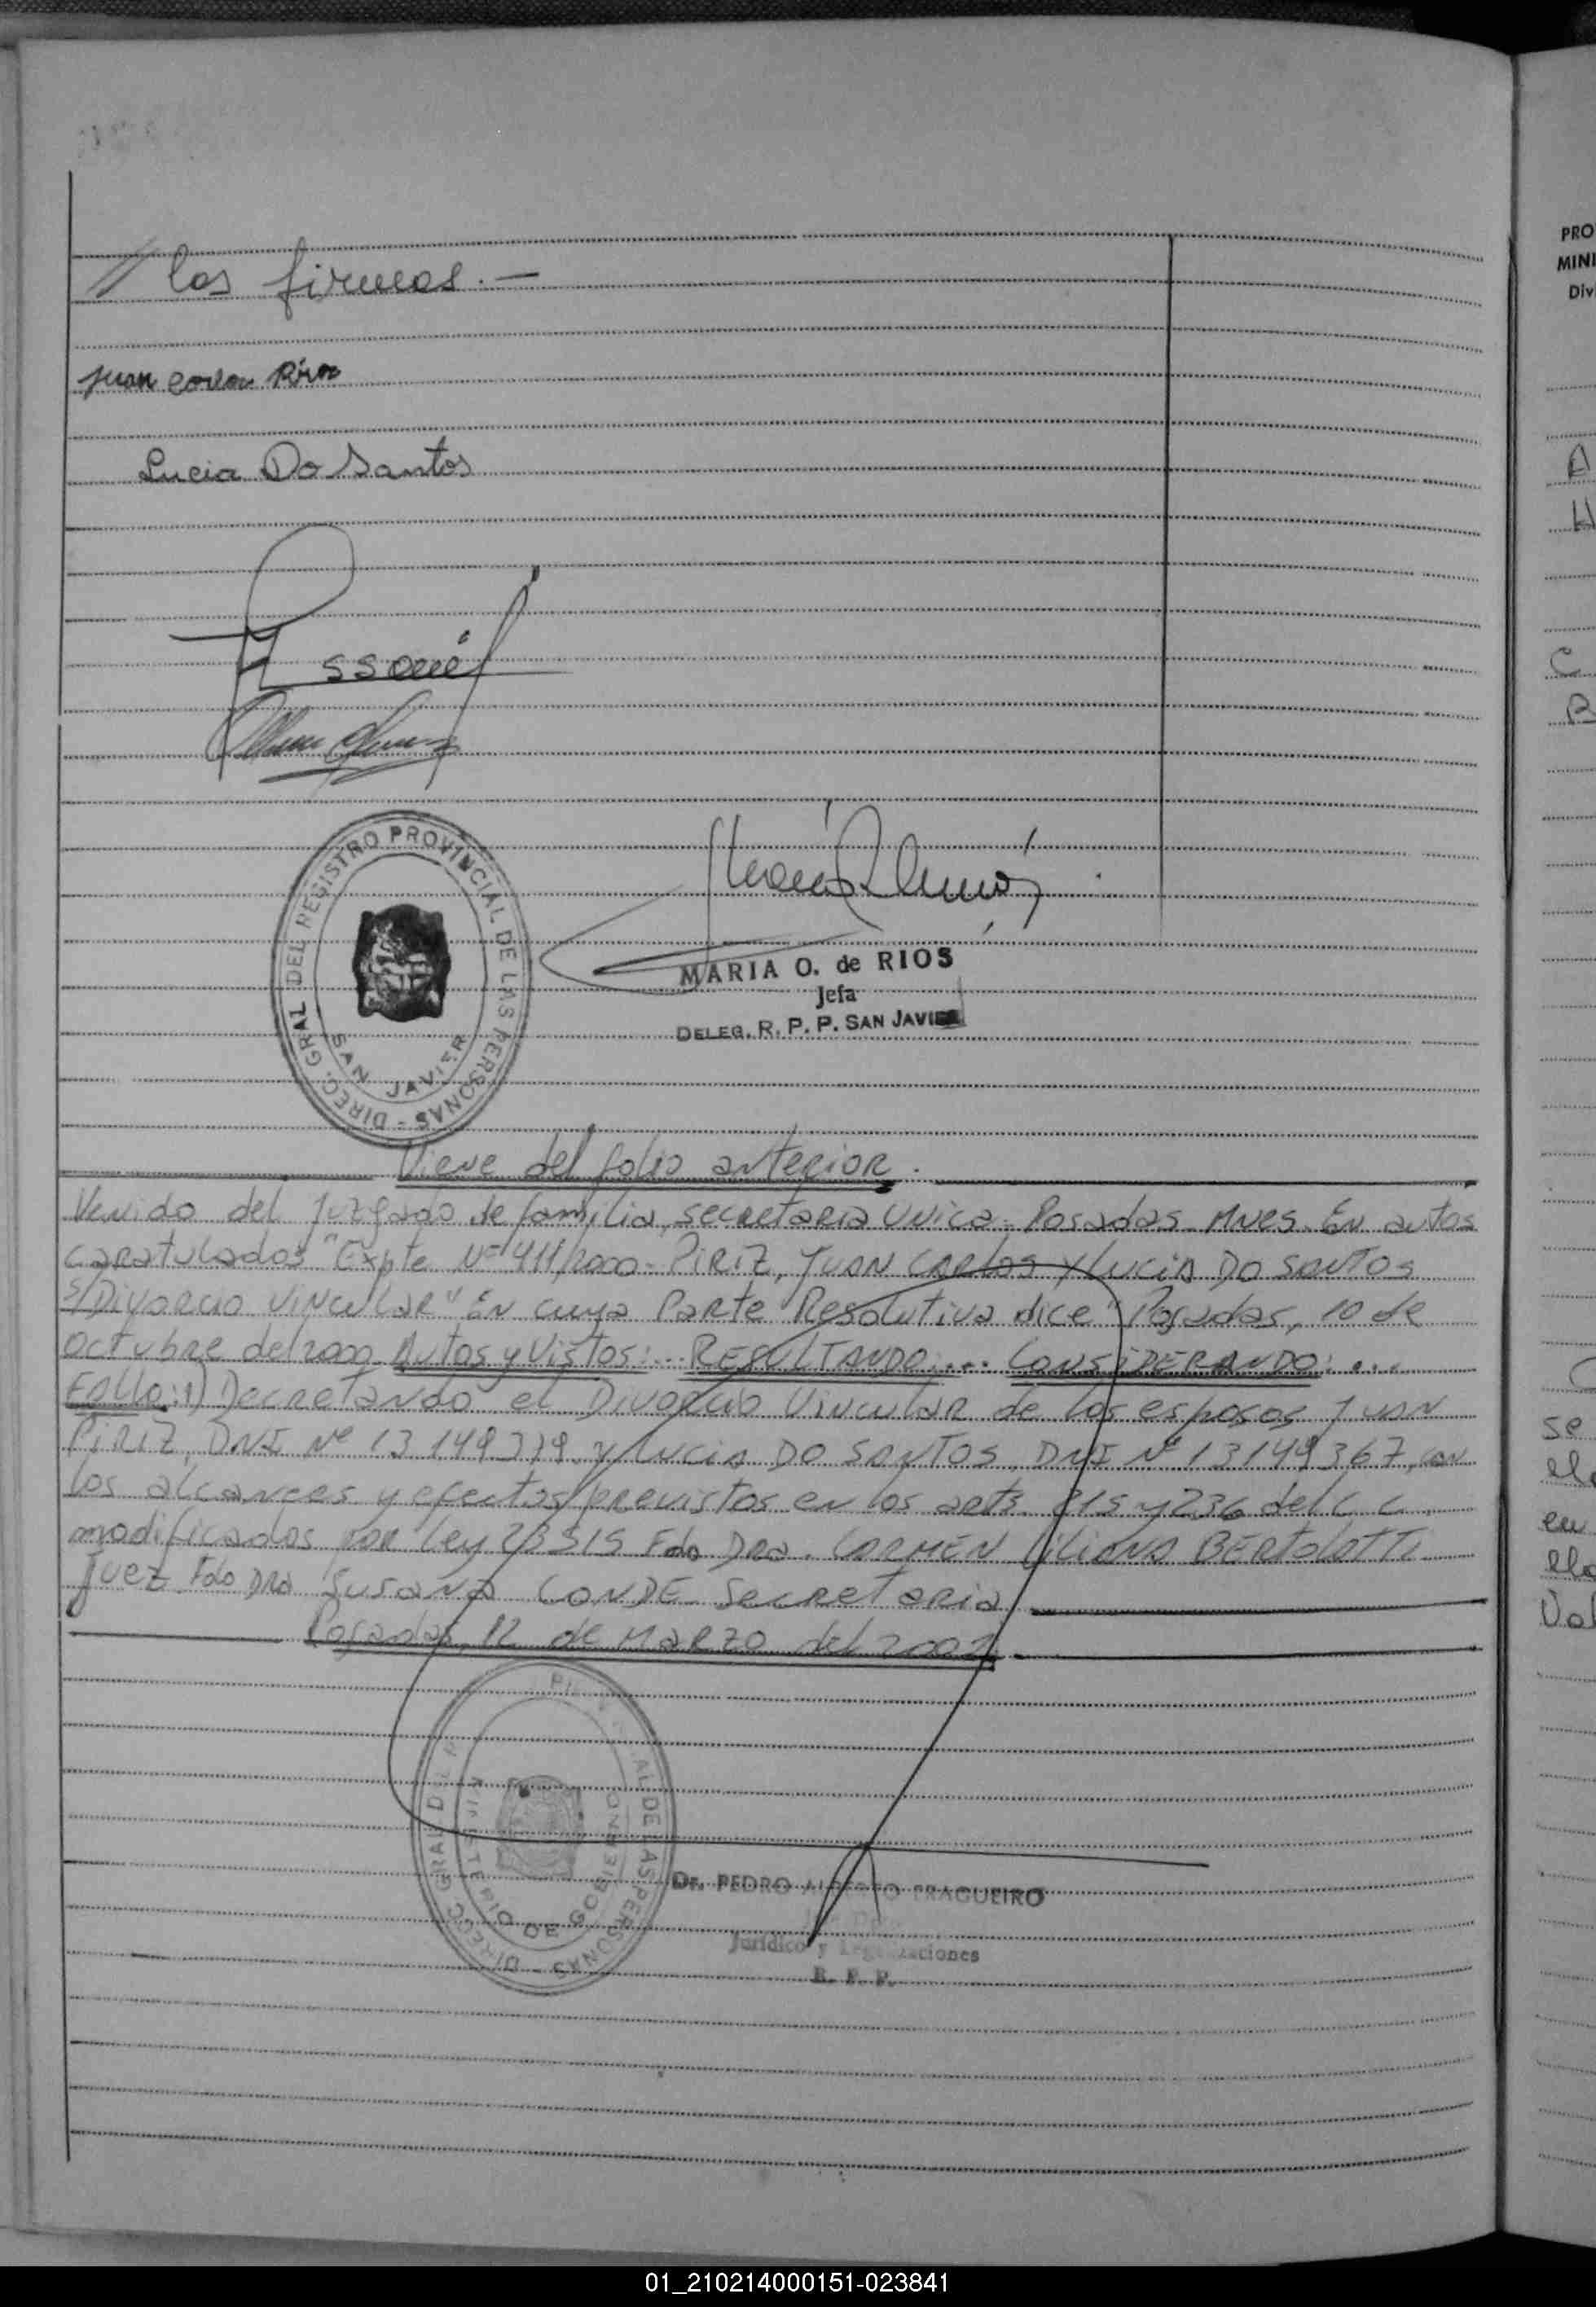 // las firmas.—
Juan Carlos Piriz
Lucia Do Santos
DIREC. GRAL DEL REGISTRO PROVINCIAL DE LAS PERSONAS -
SAN JAVIER
MARIA O. de RIOS
Jefa
DELEG. R. P. P. SAN JAVIER
Viene del folio anterior.
Venido del Juzgado de familia, secretaria Unica - Posadas - Mnes. En autos
caratulados "Expte Nº 411/2000 - PIRIZ, JUAN CARLOS y LUCIA DO SANTOS
s/Divorcio VINCULAR" En cuya Parte Resolutiva dice "Posadas, 10 de
octubre del 2000 Autos y Vistos:... RESULTANDO:... CONSIDERANDO:...
FALLO: 1) Decretando el Divorcio Vincular de los esposos JUAN
PIRIZ, DNI Nº 13149379 y LUCIA DO SANTOS, DNI Nº 13149367, con
los alcances y efectos previstos en los arts. 215 y 236 del C C.
modificados por Ley 23515 Fdo Dra. CARMEN LILIANA BERTOLOTTI
Juez Fdo Dra SUSANA CONDE Secretaria
Posadas, 12 de MARZO del 2002.
MINISTERIO DE GOBIERNO
Dr. PEDRO ALBERTO FRAGUEIRO
Jurídico y Legalizaciones
R. P. P.
PRO
MINI
Div
A
H
C
B
se
en
Val
01_210214000151-023841